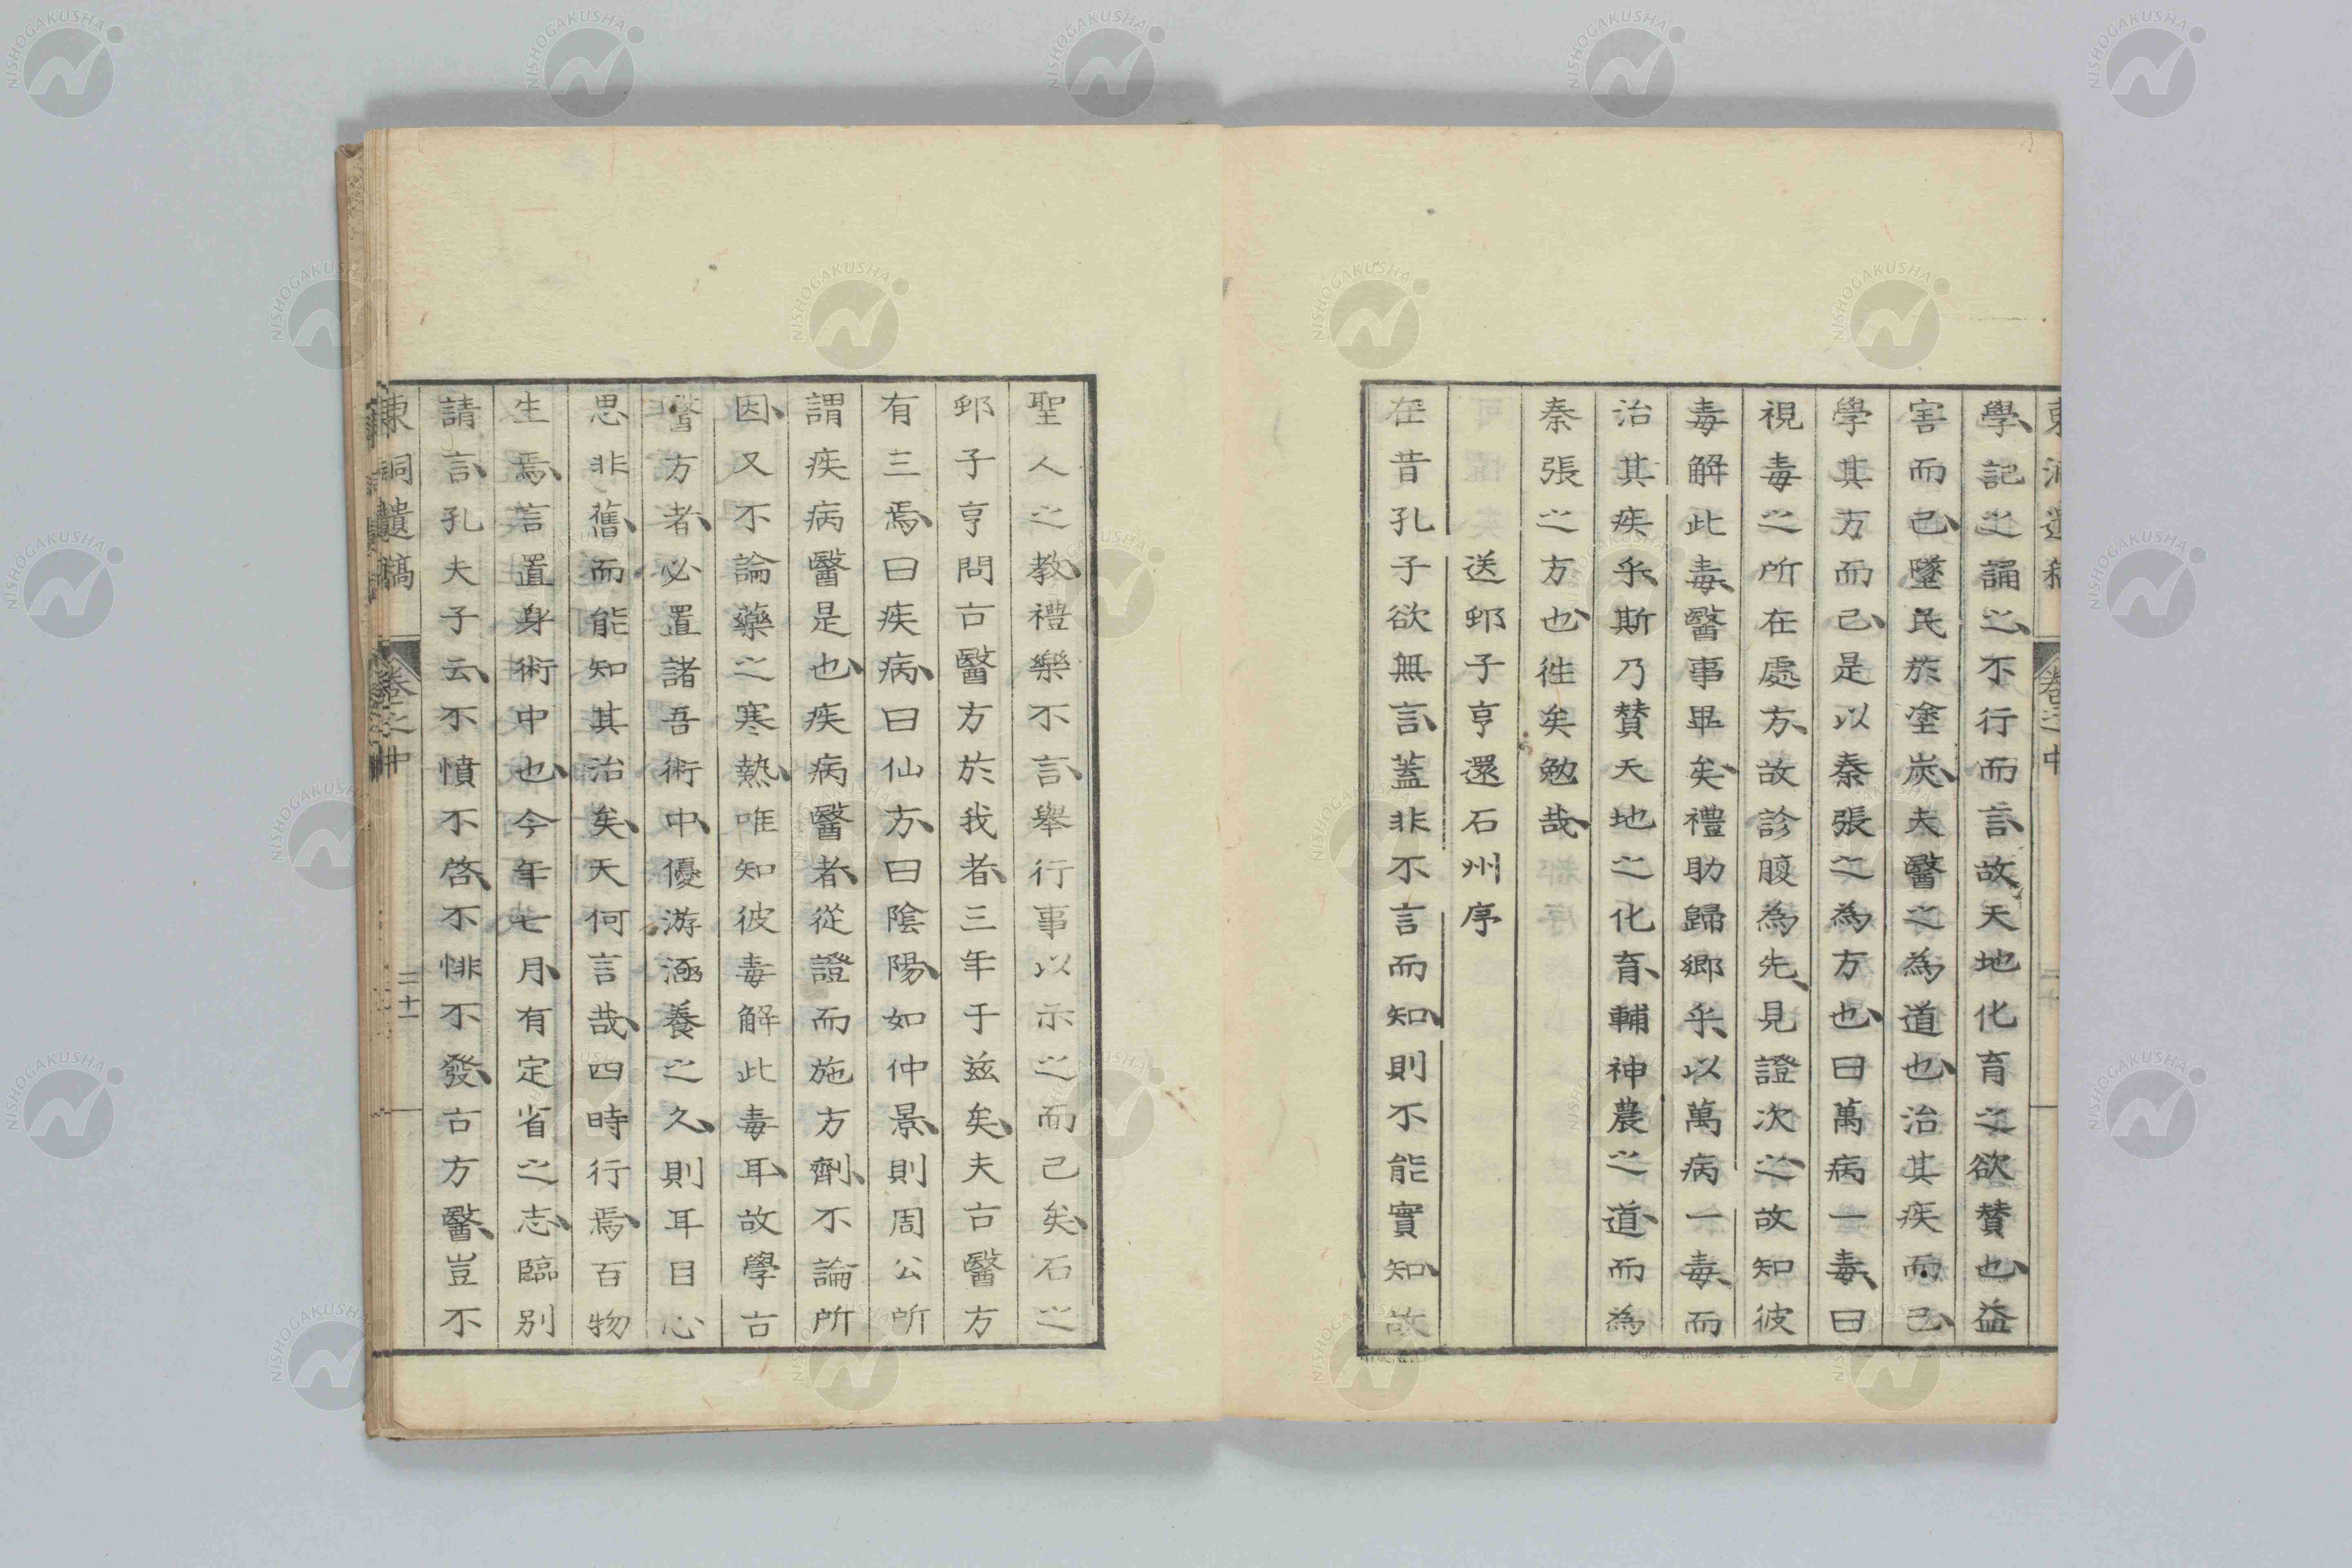 學、記之誦之、不行而言、故天地化育之欲賛也、益
害而已、墜民於塗炭、夫醫之為道也、治其疾而已、
學其方而已、是以秦張之為方也、曰萬病一毒、曰
視毒之所在處方、故診腹為先、見證次之、故知彼
毒解此毒、醫事畢矣、禮助歸鄉乎、以萬病一毒、而
治其疾乎、斯乃賛天地之化育、輔神農之道、而為
秦張之方也、徃矣勉哉、
送邾子亨還石州序
在昔孔子欲無言、蓋非不言而知、則不能實知、故
聖人之教、禮樂不言、舉行事以示之而已矣、石之
邾子亨問古醫方於我者、三年于茲矣、夫古醫方
有三焉、曰疾病、曰仙方、曰陰陽、如仲景、則周公所
謂疾病醫是也、疾病醫者、從證而施方劑、不論所
因、又不論藥之寒熱、唯知彼毒解此毒耳、故學古
醫方者、必置諸吾術中、優游涵養之久、則耳目心
思非舊、而能知其治矣、天何言哉、四時行焉、百物
生焉、言置身術中也、今年七月、有定省之志、臨別
請言、孔夫子云、不憤不啓、不悱不發、古方醫、豈不
東洞遺稿 卷之中 二十一
NISHOGAKUSHA